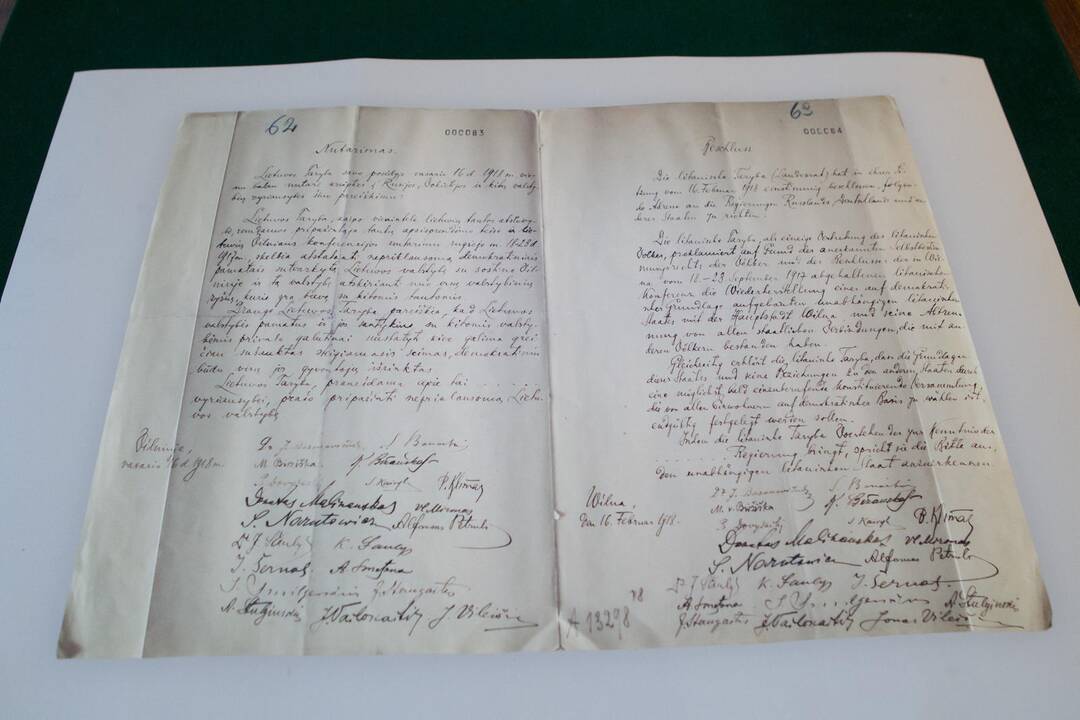 62
000083
Nutarimas.
Lietuvos Taryba savo posėdyje vasario 16 d. 1918 m. vie-
nu balsu nutarė kreiptis į Rusijos, Vokietijos ir kitų valsty-
bių vyriausybes šiuo pareiškimu:
Lietuvos Taryba, kaipo vienintelė lietuvių tautos atstovy-
bė, remdamos pripažintąja tautų apsisprendimo teise ir lie-
tuvių Vilniaus konferencijos nutarimu rugsėjo m. 18-23 d.
1917 m., skelbia atstatanti nepriklausomą demokratiniais
pamatais sutvarkytą Lietuvos valstybę su sostine Vil-
niuje ir tą valstybę atskirianti nuo visų valstybinių
ryšių, kurie yra buvę su kitomis tautomis.
Drauge Lietuvos Taryba pareiškia, kad Lietuvos
valstybės pamatus ir jos santykius su kitomis valsty-
bėmis privalo galutinai nustatyti kiek galima grei-
čiau sušauktas steigiamasis seimas, demokratiniu
būdu visų jos gyventojų išrinktas.
Lietuvos Taryba, pranešdama apie tai ......
vyriausybei, prašo pripažinti nepriklausomą Lietu-
vos valstybę.
Vilniuje,
vasario 16 d. 1918 m.
Dr J. Basanavičius S. Banaitis
M. Biržiška K. Bizauskas
P. Dovydaitis S. Kairys P. Klimas
Donatas Malinauskas Vl. Mironas
S. Narutowicz Alfonsas Petrulis
Dr J. Šaulys K. Šaulys
J. Šernas A. Smetona
J. Smilgevičius J. Staugaitis
A. Stulginskis J. Vailokaitis J. Vileišis
63
000084
Beschluss
Die litauische Taryba (Landesrat) hat in ihrer Sit-
zung vom 16. Februar 1918 einstimmig beschlossen, folgen-
de Adresse an die Regierungen Russlands, Deutschlands und an-
derer Staaten zu richten:
Die litauische Taryba, als einzige Vertretung des litauischen
Volkes, proklamiert auf Grund des anerkannten Selbstbestim-
mungsrechts der Völker und des Beschlusses der in Wil-
na vom 18-23 September 1917 abgehaltenen litauischen
Konferenz die Wiederherstellung eines auf demokrati-
scher Grundlage aufgebauten unabhängigen litauischen
Staates mit der Hauptstadt Wilna und seine Abtren-
nung von allen staatlichen Verbindungen, die mit an-
deren Völkern bestanden haben.
Gleichzeitig erklärt die litauische Taryba, dass die Grundlagen
dieses Staates und seine Beziehungen zu den anderen Staaten durch
eine möglichst bald einzuberufende konstituierende Versammlung,
die von allen Einwohnern auf demokratischer Basis zu wählen ist,
endgültig festgelegt werden sollen.
Indem die litauische Taryba Vorstehendes zur Kenntnis der
...... Regierung bringt, spricht sie die Bitte aus,
den unabhängigen litauischen Staat anzuerkennen.
Wilna,
den 16. Februar 1918.
Dr J. Basanavičius S. Banaitis
M. v. Biržiška K. Bizauskas
P. Dovydaitis S. Kairys P. Klimas
Donatas Malinauskas Vl. Mironas
S. Narutowicz Alfonsas Petrulis
Dr J. Šaulys K. Šaulys J. Šernas
A. Smetona J. Smilgevičius A. Stulginski
J. Staugaitis J. Vailokaitis Jonas Vileišis
A 13298